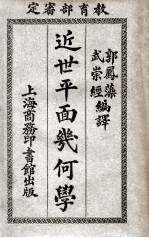 教育部審定
郭鳳藻
武崇經 編譯
近世平面幾何學
上海商務印書館出版